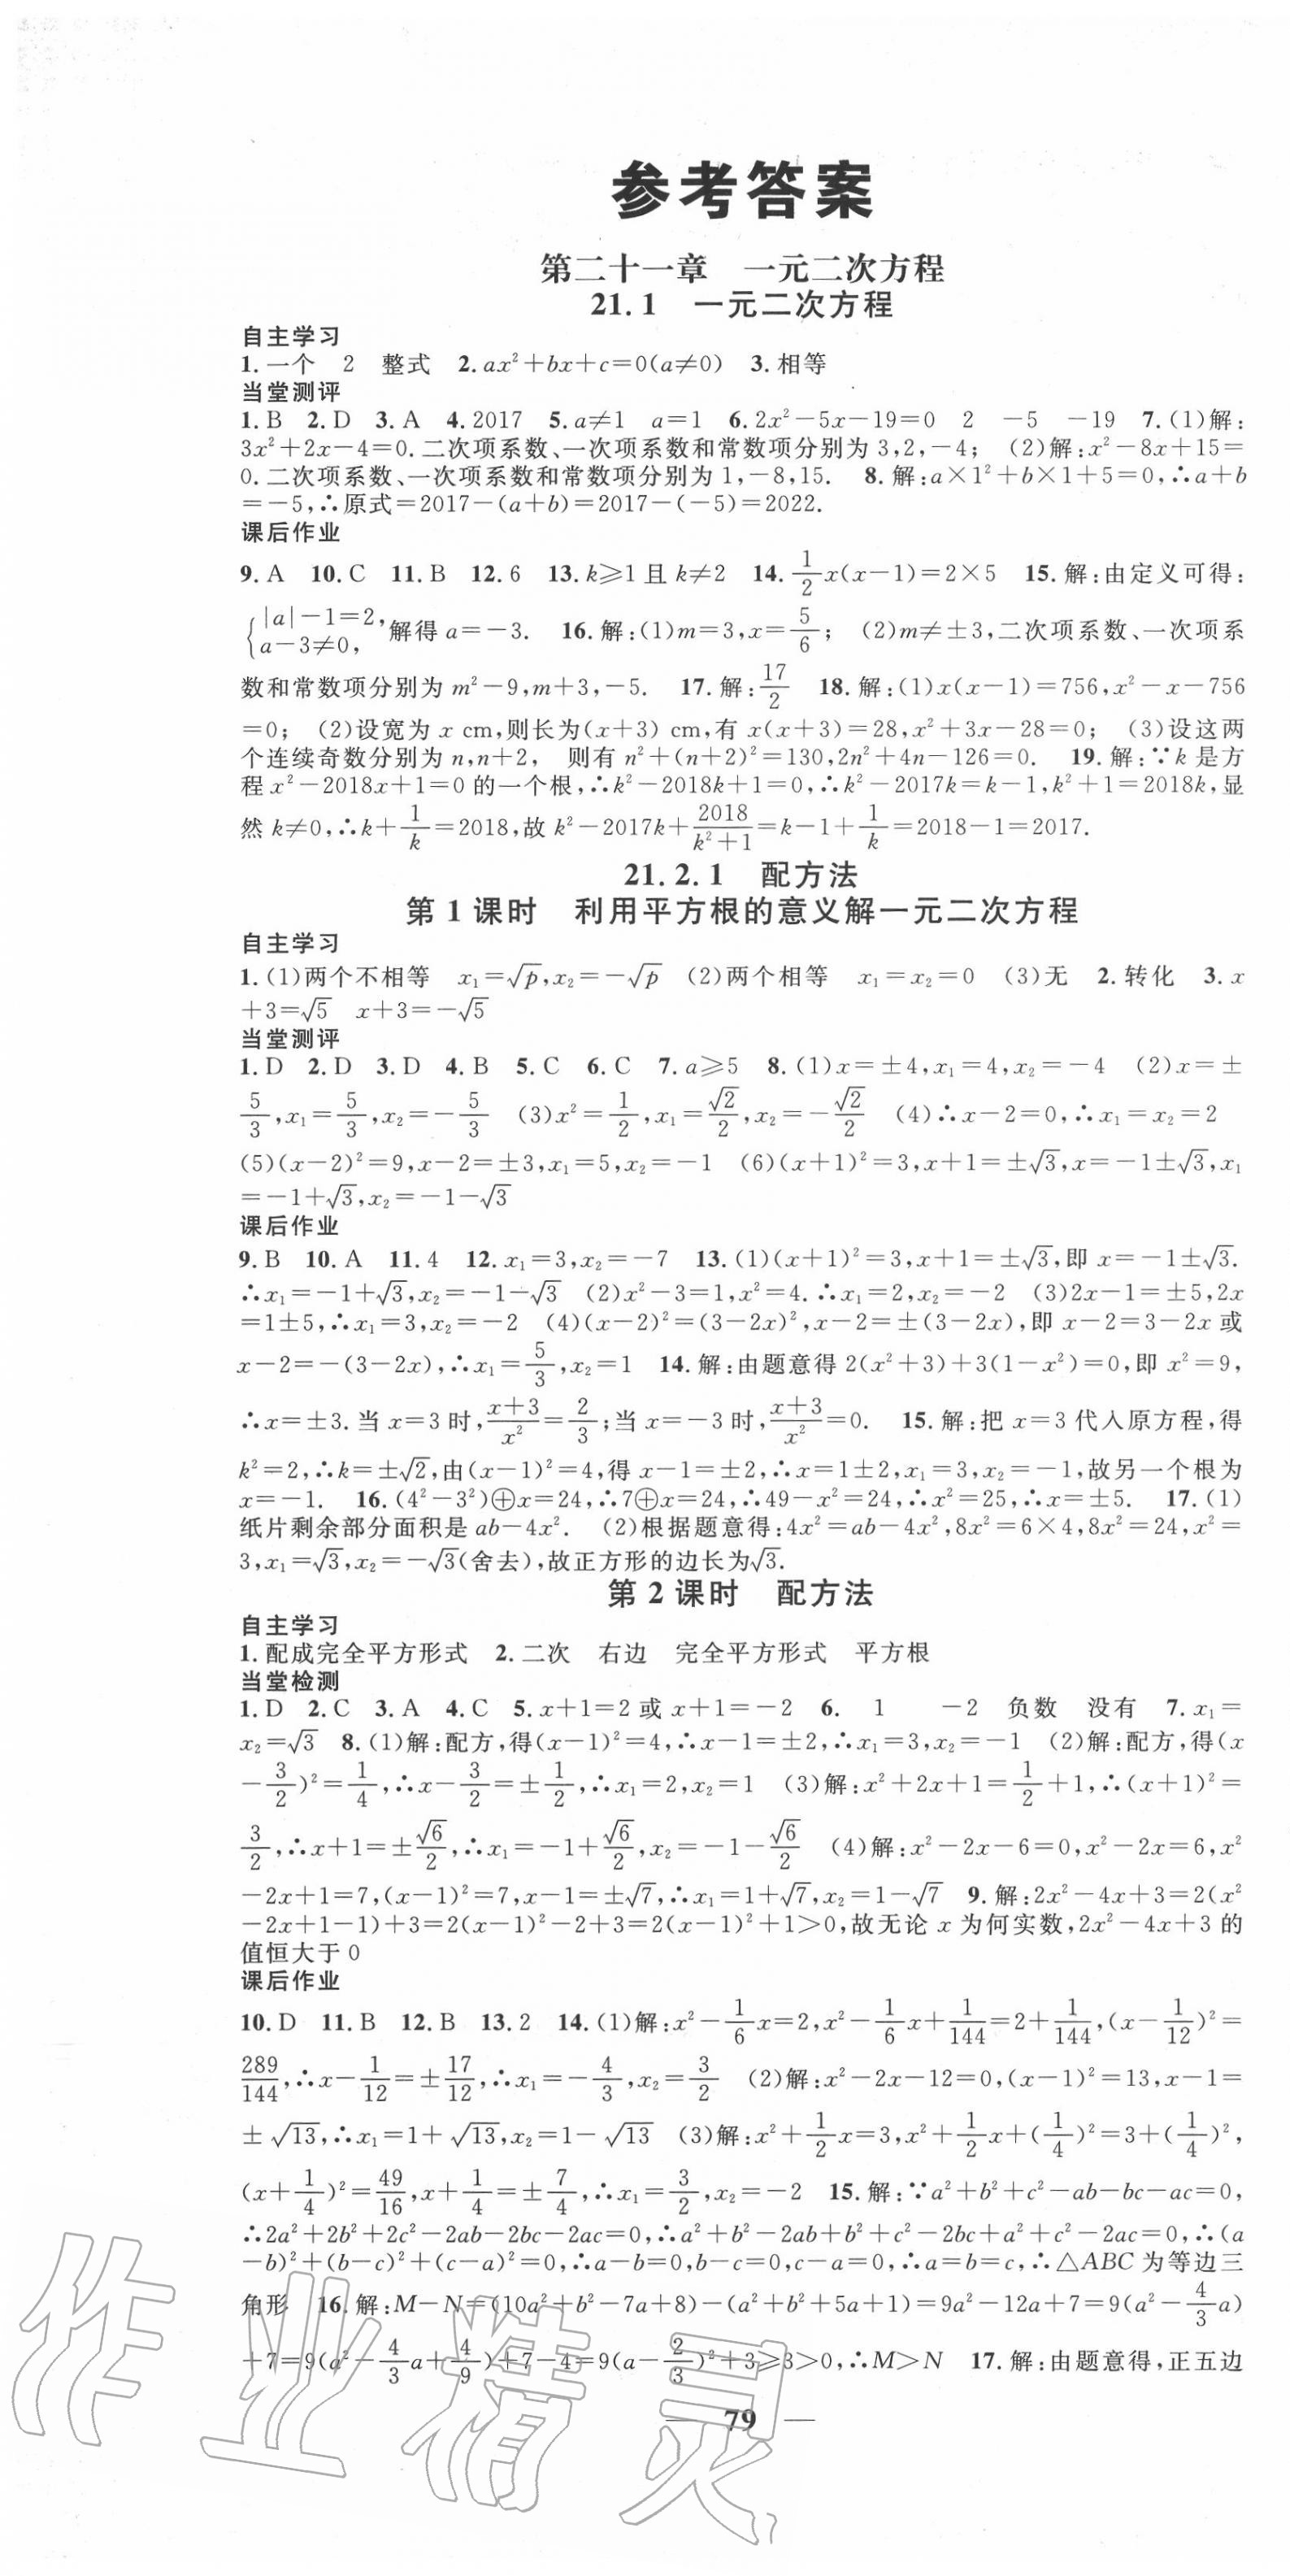 参考答案
第二十一章　一元二次方程
21.1　一元二次方程
自主学习
1.一个　2　整式　2.ax²+bx+c=0(a≠0)　3.相等
当堂测评
1.B　2.D　3.A　4.2017　5.a≠1　a=1　6.2x²-5x-19=0　2　-5　-19　7.(1)解:
3x²+2x-4=0.二次项系数、一次项系数和常数项分别为3,2,-4;　(2)解:x²-8x+15=
0.二次项系数、一次项系数和常数项分别为1,-8,15.　8.解:a×1²+b×1+5=0,∴a+b
=-5,∴原式=2017-(a+b)=2017-(-5)=2022.
课后作业
9.A　10.C　11.B　12.6　13.k≥1且k≠2　14.1/2x(x-1)=2×5　15.解:由定义可得:
{|a|-1=2, a-3≠0,解得a=-3.　16.解:(1)m=3,x=5/6;　(2)m≠±3,二次项系数、一次项系
数和常数项分别为m²-9,m+3,-5.　17.解:17/2　18.解:(1)x(x-1)=756,x²-x-756
=0;　(2)设宽为x cm,则长为(x+3) cm,有x(x+3)=28,x²+3x-28=0;　(3)设这两
个连续奇数分别为n,n+2,　则有n²+(n+2)²=130,2n²+4n-126=0.　19.解:∵k是方
程x²-2018x+1=0的一个根,∴k²-2018k+1=0,∴k²-2017k=k-1,k²+1=2018k,显
然k≠0,∴k+1/k=2018,故k²-2017k+2018/(k²+1)=k-1+1/k=2018-1=2017.
21.2.1　配方法
第1课时　利用平方根的意义解一元二次方程
自主学习
1.(1)两个不相等　x₁=√p,x₂=-√p　(2)两个相等　x₁=x₂=0　(3)无　2.转化　3.x
+3=√5　x+3=-√5
当堂测评
1.D　2.D　3.D　4.B　5.C　6.C　7.a≥5　8.(1)x=±4,x₁=4,x₂=-4　(2)x=±
5/3,x₁=5/3,x₂=-5/3　(3)x²=1/2,x₁=√2/2,x₂=-√2/2　(4)∴x-2=0,∴x₁=x₂=2
(5)(x-2)²=9,x-2=±3,x₁=5,x₂=-1　(6)(x+1)²=3,x+1=±√3,x=-1±√3,x₁
=-1+√3,x₂=-1-√3
课后作业
9.B　10.A　11.4　12.x₁=3,x₂=-7　13.(1)(x+1)²=3,x+1=±√3,即x=-1±√3.
∴x₁=-1+√3,x₂=-1-√3　(2)x²-3=1,x²=4.∴x₁=2,x₂=-2　(3)2x-1=±5,2x
=1±5,∴x₁=3,x₂=-2　(4)(x-2)²=(3-2x)²,x-2=±(3-2x),即x-2=3-2x或
x-2=-(3-2x),∴x₁=5/3,x₂=1　14.解:由题意得2(x²+3)+3(1-x²)=0,即x²=9,
∴x=±3.当x=3时,(x+3)/x²=2/3;当x=-3时,(x+3)/x²=0.　15.解:把x=3代入原方程,得
k²=2,∴k=±√2,由(x-1)²=4,得x-1=±2,∴x=1±2,x₁=3,x₂=-1,故另一个根为
x=-1.　16.(4²-3²)⊕x=24,∴7⊕x=24,∴49-x²=24,∴x²=25,∴x=±5.　17.(1)
纸片剩余部分面积是ab-4x².　(2)根据题意得:4x²=ab-4x²,8x²=6×4,8x²=24,x²=
3,x₁=√3,x₂=-√3(舍去),故正方形的边长为√3.
第2课时　配方法
自主学习
1.配成完全平方形式　2.二次　右边　完全平方形式　平方根
当堂检测
1.D　2.C　3.A　4.C　5.x+1=2或x+1=-2　6.　1　-2　负数　没有　7.x₁=
x₂=√3　8.(1)解:配方,得(x-1)²=4,∴x-1=±2,∴x₁=3,x₂=-1　(2)解:配方,得(x
-3/2)²=1/4,∴x-3/2=±1/2,∴x₁=2,x₂=1　(3)解:x²+2x+1=1/2+1,∴(x+1)²=
3/2,∴x+1=±√6/2,∴x₁=-1+√6/2,x₂=-1-√6/2　(4)解:x²-2x-6=0,x²-2x=6,x²
-2x+1=7,(x-1)²=7,x-1=±√7,∴x₁=1+√7,x₂=1-√7　9.解:2x²-4x+3=2(x²
-2x+1-1)+3=2(x-1)²-2+3=2(x-1)²+1>0,故无论x为何实数,2x²-4x+3的
值恒大于0
课后作业
10.D　11.B　12.B　13.2　14.(1)解:x²-1/6x=2,x²-1/6x+1/144=2+1/144,(x-1/12)²=
289/144,∴x-1/12=±17/12,∴x₁=-4/3,x₂=3/2　(2)解:x²-2x-12=0,(x-1)²=13,x-1=
±√13,∴x₁=1+√13,x₂=1-√13　(3)解:x²+1/2x=3,x²+1/2x+(1/4)²=3+(1/4)²,
(x+1/4)²=49/16,x+1/4=±7/4,∴x₁=3/2,x₂=-2　15.解:∵a²+b²+c²-ab-bc-ac=0,
∴2a²+2b²+2c²-2ab-2bc-2ac=0,∴a²+b²-2ab+b²+c²-2bc+a²+c²-2ac=0,∴(a
-b)²+(b-c)²+(c-a)²=0,∴a-b=0,b-c=0,c-a=0,∴a=b=c,∴△ABC为等边三
角形　16.解:M-N=(10a²+b²-7a+8)-(a²+b²+5a+1)=9a²-12a+7=9(a²-4/3a)
+7=9(a²-4/3a+4/9)+7-4=9(a-2/3)²+3≥3>0,∴M>N　17.解:由题意得,正五边
— 79 —
作业精灵